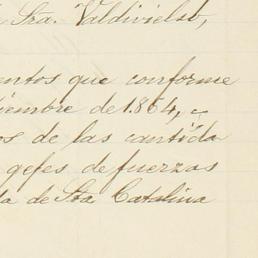 Sra. Valdivielso,
entos que conforme
iembre de 1864, y
os de las cantida
gefes de fuerzas
da de Sta Catalina